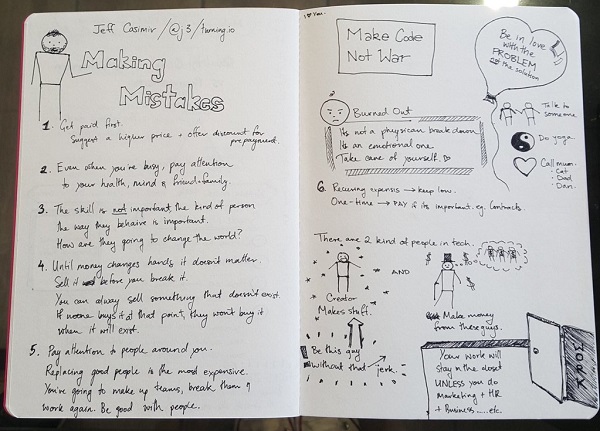 Jeff Casimir / @j3 / turning.io
Making
Mistakes
1. Get paid first.
Suggest a higher price + offer discount for
prepayment.
2. Even when you're busy, pay attention
to your health, mind & friend + family.
3. The skill is not important, the kind of person
the way they behaive is important.
How are they going to change the world?
4. Until money changes hands it doesn't matter.
Sell it before you break it.
You can alway sell something that doesn't exist.
If noone buys it at that point, they won't buy it
when it will exist.
5. Pay attention to people around you.
Replacing good people is the most expensive.
You're going to make up teams, break them &
work again. Be good with people.
Make Code
Not War
Be in love
with the
PROBLEM
not the solution
Burned Out
Its not a physican break down
Its an emotional one.
Take care of yourself.
Talk to
someone
Do yoga.
Call mum
· Cat
· Dad
· Dan.
6. Recuring expensis → keep low.
One-time → PAY if its important. eg. Contracts
There are 2 kind of people in tech.
AND
Creator
Makes stuff.
Make money
from these guys.
Be this guy
without that jerk.
Your work will
stay in the closet
UNLESS you do
Marketing + HR
+ Business ..... etc.
WORK